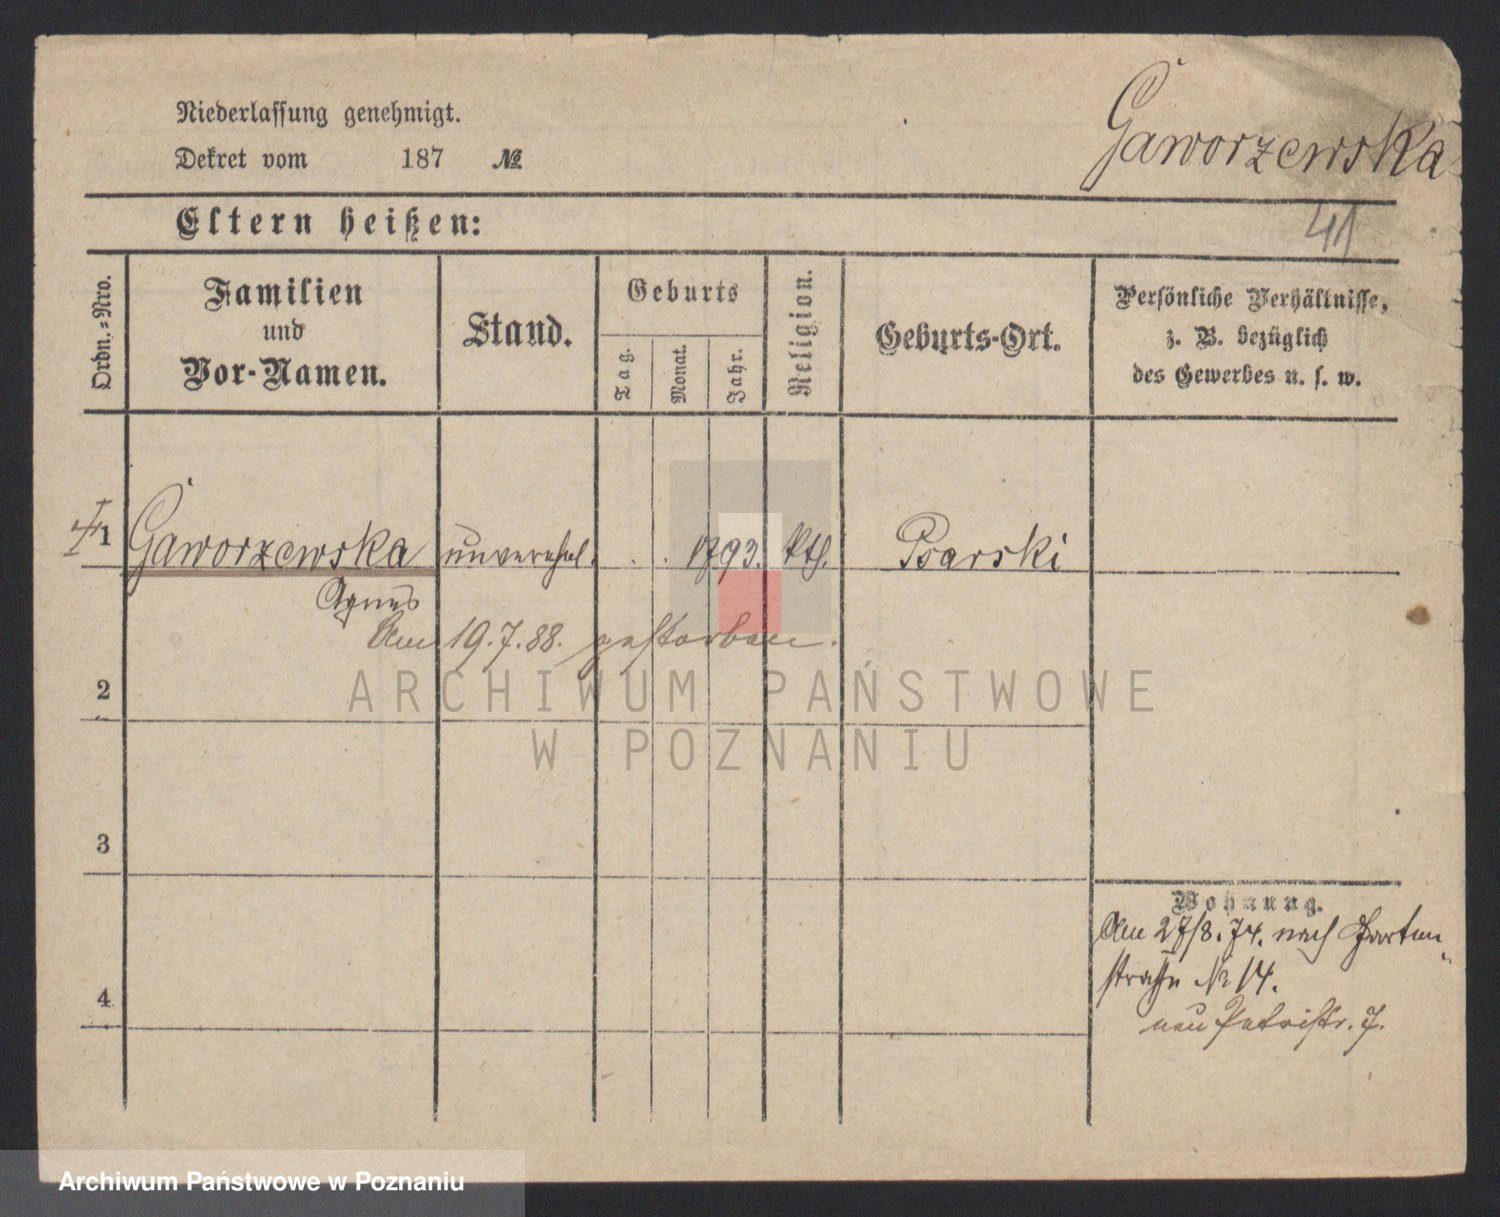 Niederlassung genehmigt.
Dekret vom 187 №
Gaworzewska
41
Eltern heißen:
Ordn.=Nro.
Familien
und
Vor-Namen.
Stand.
Geburts
Tag.
Monat.
Jahr.
Religion.
Geburts-Ort.
Persönliche Verhältnisse,
z. B. bezüglich
des Gewerbes u. s. w.
1 Gaworzewska unverehel. . . 1793. kth. Psarski
Agnes
Am 19.7.88. gestorben.
2
3
4
Wohnung.
Am 27/8.74. nach Garten-
straße № 14.
neu Petristr. 7.
ARCHIWUM PAŃSTWOWE
W POZNANIU
Archiwum Państwowe w Poznaniu